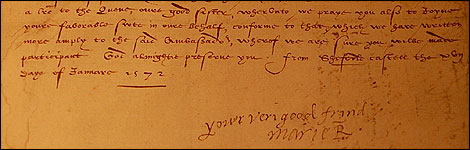 a lre to the Quene oure good sister, wherunto we praye you also to Joyne
youre favorable sute in oure behalf conforme to that whiche we have written
more amply to the said Ambassador, whereof we are sure you wilbe made
participant God almightie preserve you from Shefeild castell the
daye of Januarie 1572
yower veri good frind
Marie R